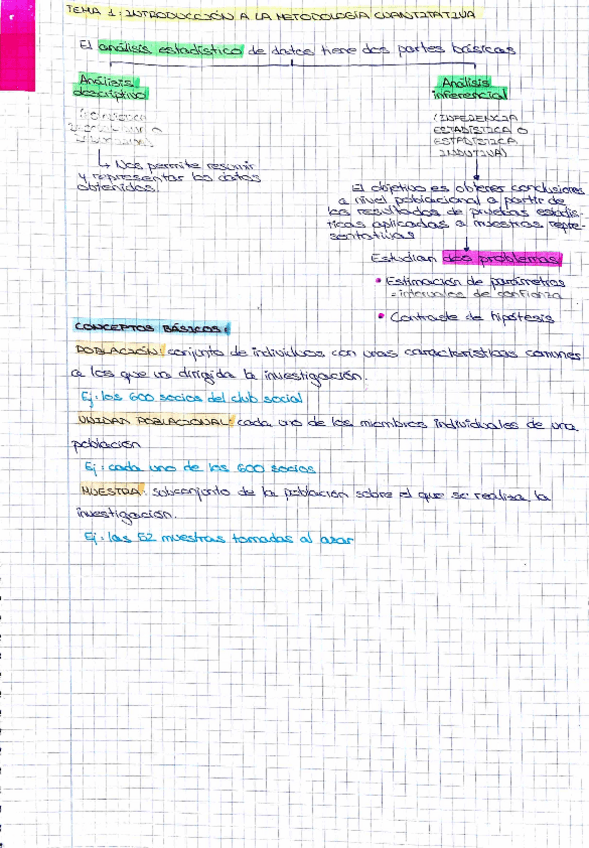 TEMA 1: INTRODUCCIÓN A LA METODOLOGÍA CUANTITATIVA
El análisis estadístico de datos tiene dos partes básicas
Análisis
descriptivo
↳ Nos permite resumir
y representar los datos
obtenidos.
Análisis
inferencial
(INFERENCIA
ESTADÍSTICA O
ESTADÍSTICA
INDUTIVA)
El objetivo es obtener conclusiones
a nivel poblacional a partir de
los resultados de pruebas estadís-
ticas aplicadas a muestras repre-
sentativas
Estudian dos problemas
• Estimación de parámetros
- intervalos de confianza
• Contraste de hipótesis
CONCEPTOS BÁSICOS:
POBLACIÓN: conjunto de individuos con unas características comunes
a los que va dirigida la investigación.
Ej: los 600 socios del club social
UNIDAD POBLACIONAL: cada uno de los miembros individuales de una
población
Ej: cada uno de los 600 socios
MUESTRA: subconjunto de la población sobre el que se realiza la
investigación.
Ej: las 52 muestras tomadas al azar